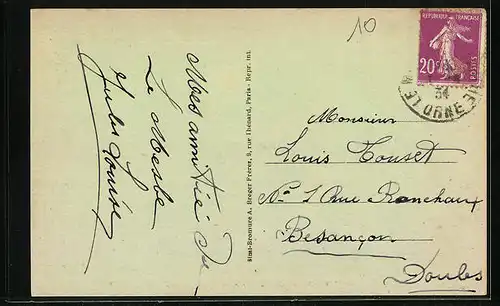 10
RÉPUBLIQUE FRANÇAISE
20c
POSTES
34
ORNE
Mes amitiés
Le Mesle
Jules Louise
Simi-Bromure A. Breger Frères, 9, rue Thénard, Paris - Repr. int.
Monsieur
Louis Touset
No 1 Rue Ronchaux
Besançon
Doubs